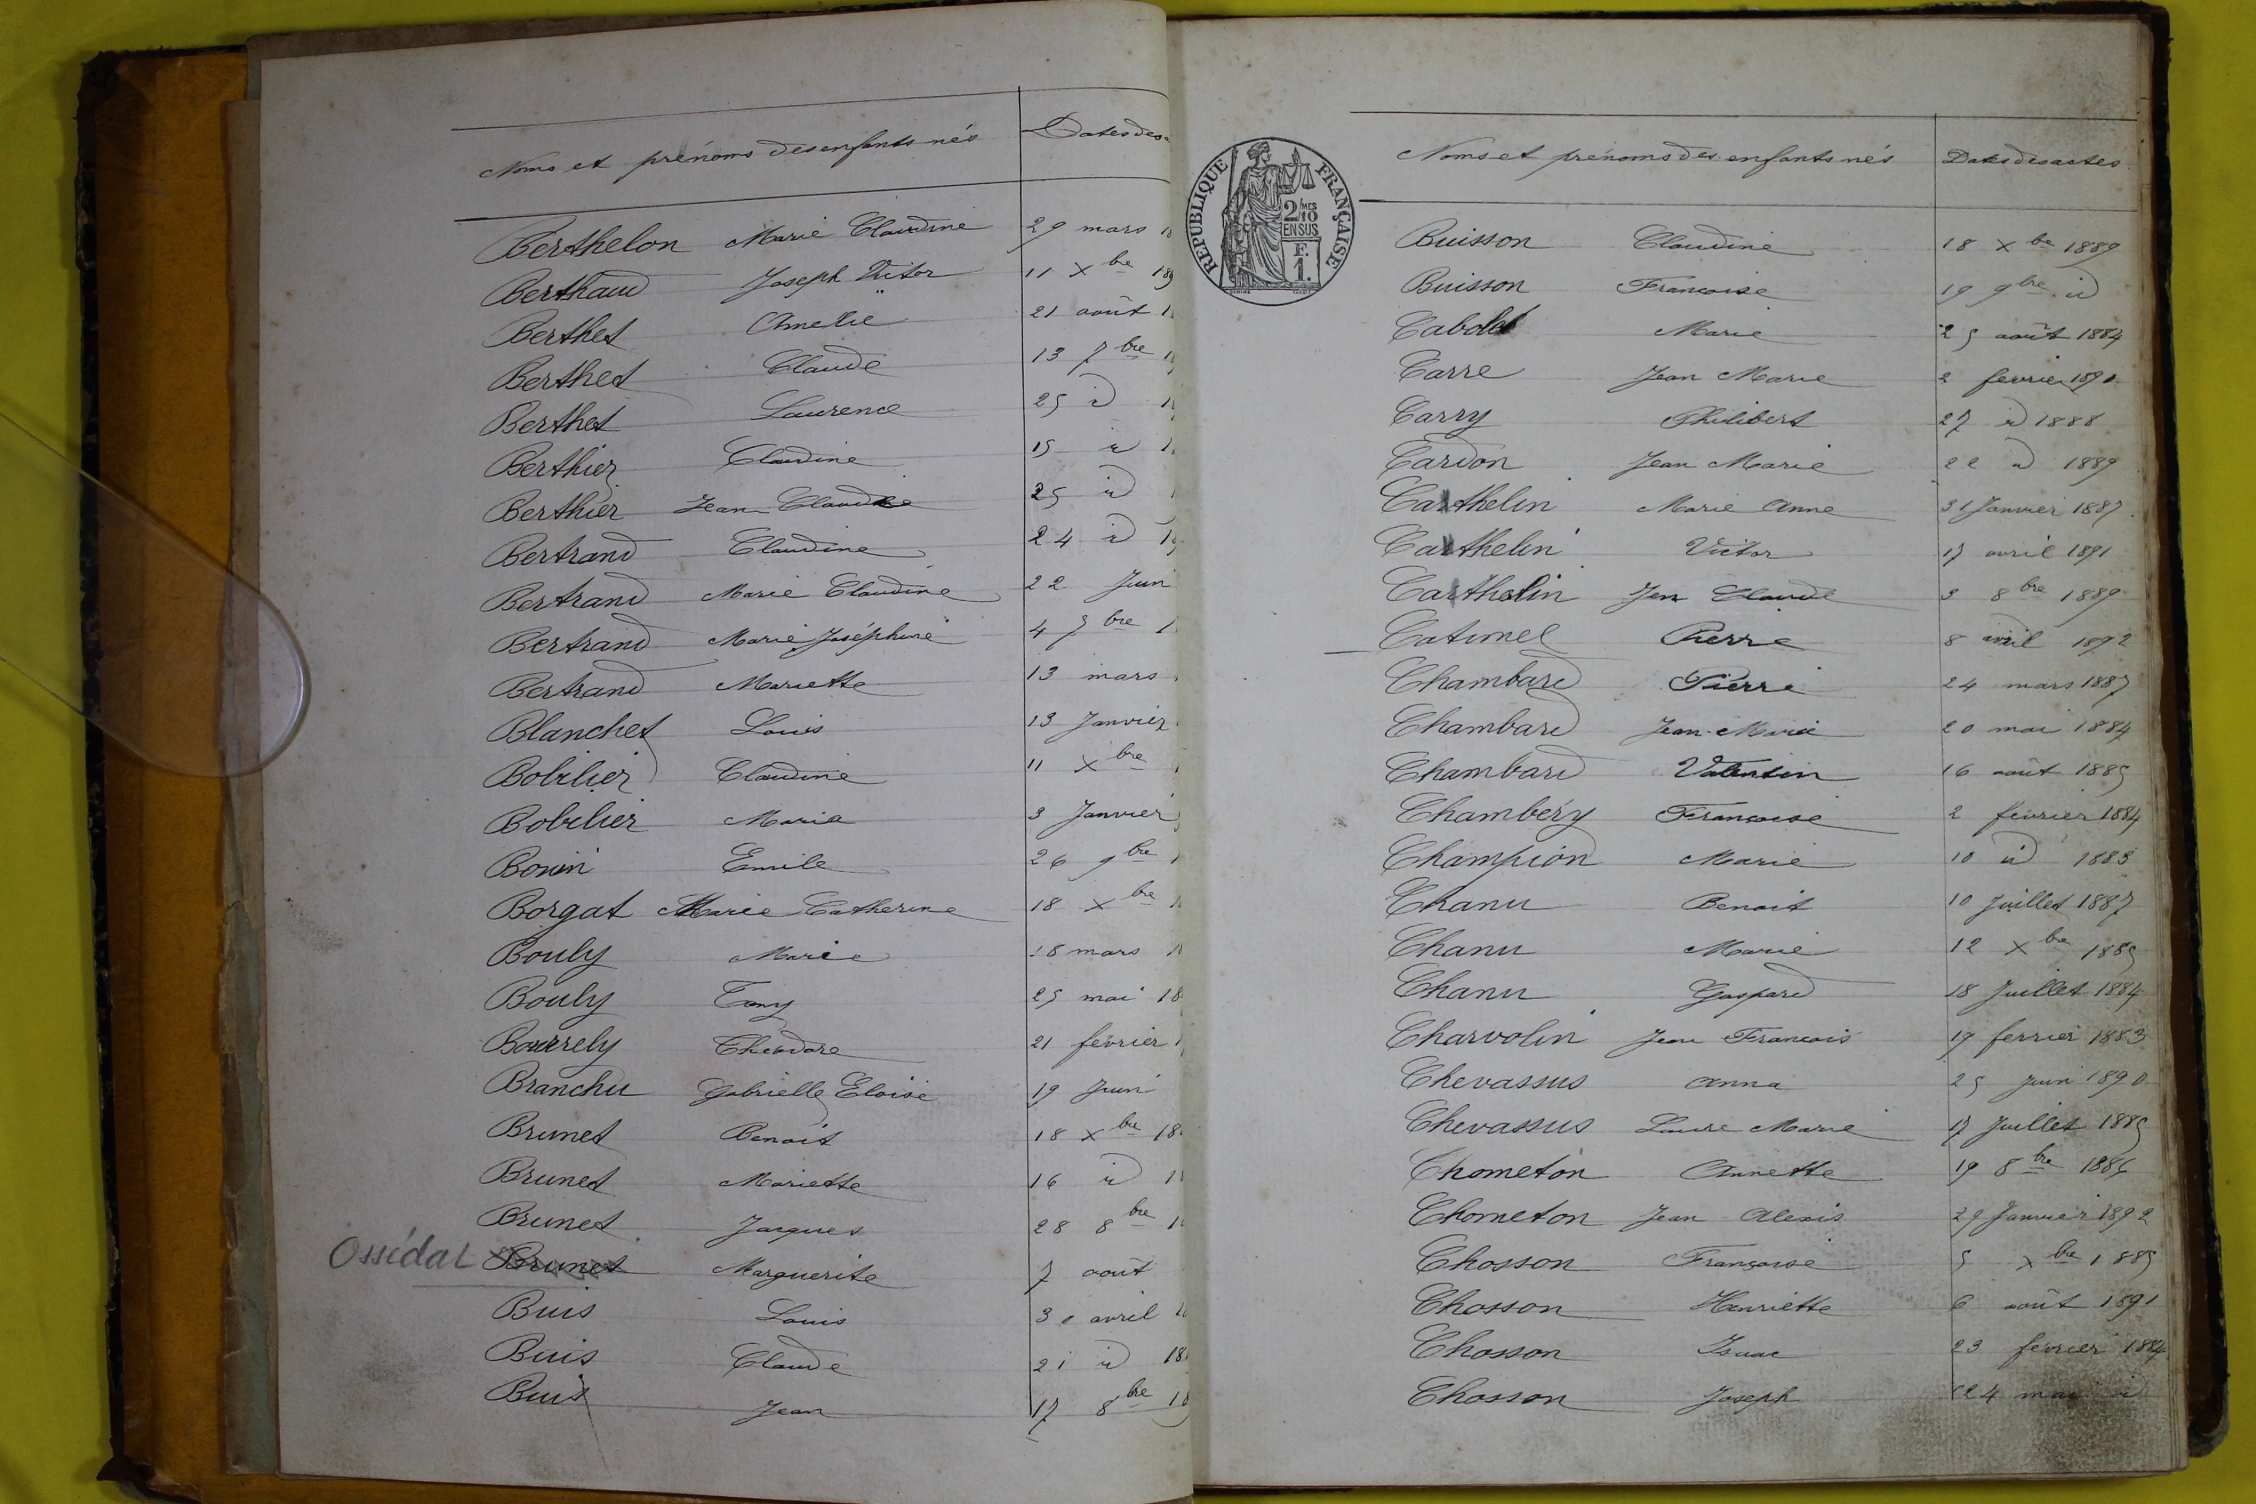 Noms et prénoms des enfants nés Dates des
Berthelon Marie Claudine 29 mars
Berthaud Joseph Victor 11 Xbre 189
Berthet Amelie 21 août
Berthet Claude 13 7bre
Berthet Laurence 25 id
Berthier Claudine 15 id
Berthier Jean Claude 25 id
Bertrand Claudine 24 id
Bertrand Marie Claudine 22 Juin
Bertrand Marie Joséphine 4 7bre
Bertrand Mariette 13 mars
Blanchet Louis 13 Janvier
Bobilier Claudine 11 Xbre
Bobilier Maria 3 Janvier
Bonin Emile 26 9bre
Borgat Marie Catherine 18 Xbre
Bouly Marie 18 mars
Bouly Tony 25 mai 18
Bourrely Théodore 21 février
Branchu Gabrielle Eloise 19 Juin
Brunet Benoit 18 Xbre 18
Brunet Mariette 16 id
Brunet Jacques 28 8bre
Ossédat Brunet Marguerite 7 août
Buis Louis 30 avril
Buis Claude 21 id 18
Buis Jean 17 8bre 18
RÉPUBLIQUE FRANÇAISE
2/10 MES
EN SUS
F.
1.
Noms et prénoms des enfants nés Dates des actes
Buisson Claudine 18 Xbre 1889
Buisson Francoise 19 9bre id
Cabolet Marie 25 août 1884
Carre Jean Marie 2 fevrier 1890
Carry Philibert 27 id 1888
Cardon Jean Marie 22 id 1889
Carthelin Marie Anne 31 Janvier 1887
Carthelin Victor 17 avril 1891
Carthelin Jen Claude 3 8bre 1889
Catimel Pierre 8 avril 1892
Chambard Pierre 24 mars 1887
Chambard Jean-Marie 20 mai 1884
Chambard Valentin 16 août 1885
Chambéry Francoise 2 février 1884
Champion Marie 10 id 1885
Chanu Benoit 10 Juillet 1887
Chanu Marie 12 Xbre 1885
Chanu Gaspard 18 Juillet 1884
Charvolin Jean Francois 19 fevrier 1883
Chevassus Anna 25 Juin 1890
Chevassus Laure Marie 17 Juillet 1885
Chometon Annette 19 8bre 1886
Chometon Jean Alexis 29 Janvier 1892
Chosson Françoise 5 Xbre 1885
Chosson Henriette 6 août 1891
Chosson Isaac 23 fevrier 1884
Chosson Joseph 24 mai id